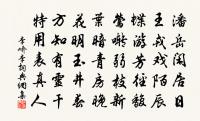 潘岳閑居日
王戎戲陌辰
蝶遊芳徑馥
鶯囀弱枝新
葉暗青房晚
花明玉井春
方知有靈幹
特用表真人
李嶠李詞典網集